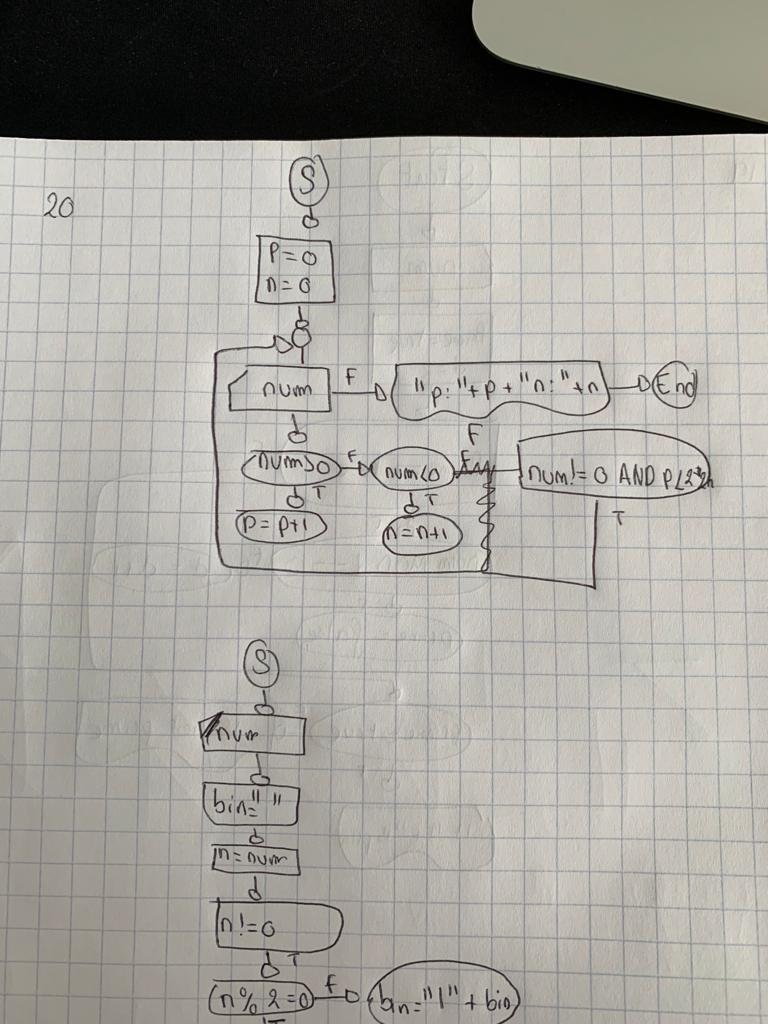 20
S
p=0
n=0
num
F
"p:"+p+"n:"+n
End
num>0
F
num<0
F
num!=0 AND p<2*2n
T
T
T
p=p+1
n=n+1
S
num
bin=" "
n=num
n!=0
T
n%2=0
F
bin="1"+bin
T